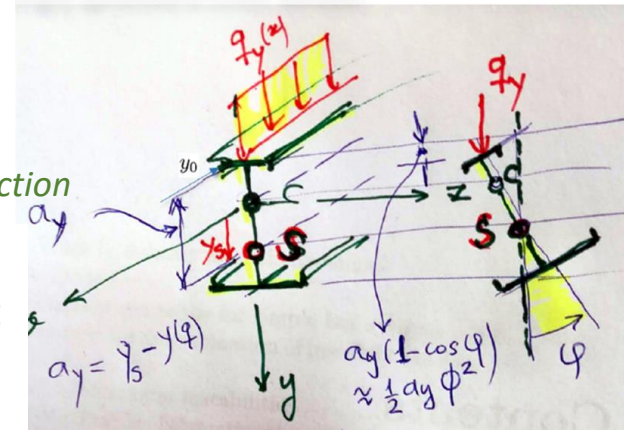 q_y(x)
q_y
y_0
ction
C
C
z
a_y
y_s
S
S
a_y = y_s - y(q)
a_y(1-cosφ)
≈ ½ a_y ϕ²
φ
y